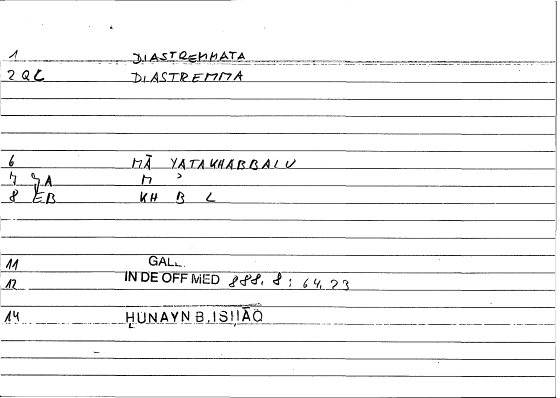 1 DIASTREMMATA
2 QL DIASTREMMA
6 MĀ YATAKHABBALU
7 M ʾ
8 EB KH B L
11 GAL.
12 IN DE OFF MED 888. 8 : 64, 23
14 ḤUNAYN B. ISḤĀQ